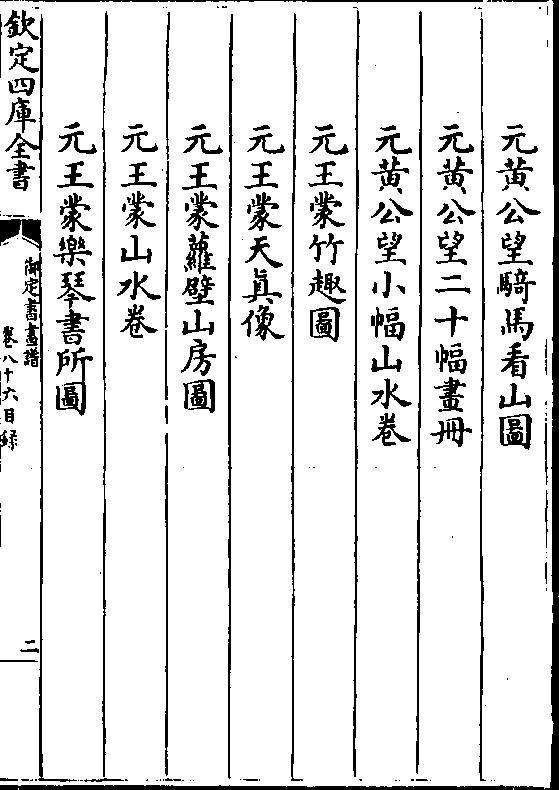 元黄公望騎馬看山圖
元黄公望二十幅畫冊
元黄公望小幅山水卷
元王蒙竹趣圖
元王蒙天真像
元王蒙蘿壁山房圖
元王蒙山水卷
元王蒙樂琴書所圖
欽定四庫全書
御定書畫譜
卷八十六目録
二